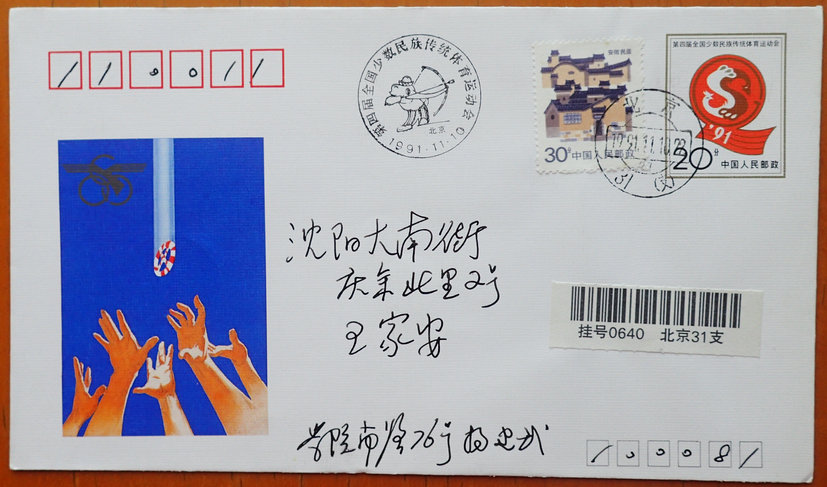 110011
第四届全国少数民族传统体育运动会
北京
1991·11·10
安徽民居
30分 中国人民邮政
第四届全国少数民族传统体育运动会
'91
20分
中国人民邮政
北京
31 (支)
沈阳大南街
庆余北里2号
王家安
挂号0640 北京31支
100081